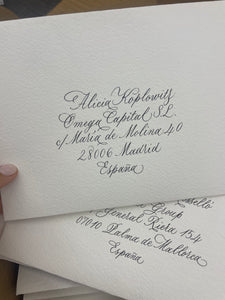 Alicia Koplowitz
Omega Capital, S.L.
c/ María de Molina 40
28006 Madrid
España
Group
General Riera 154
07010 Palma de Mallorca
España